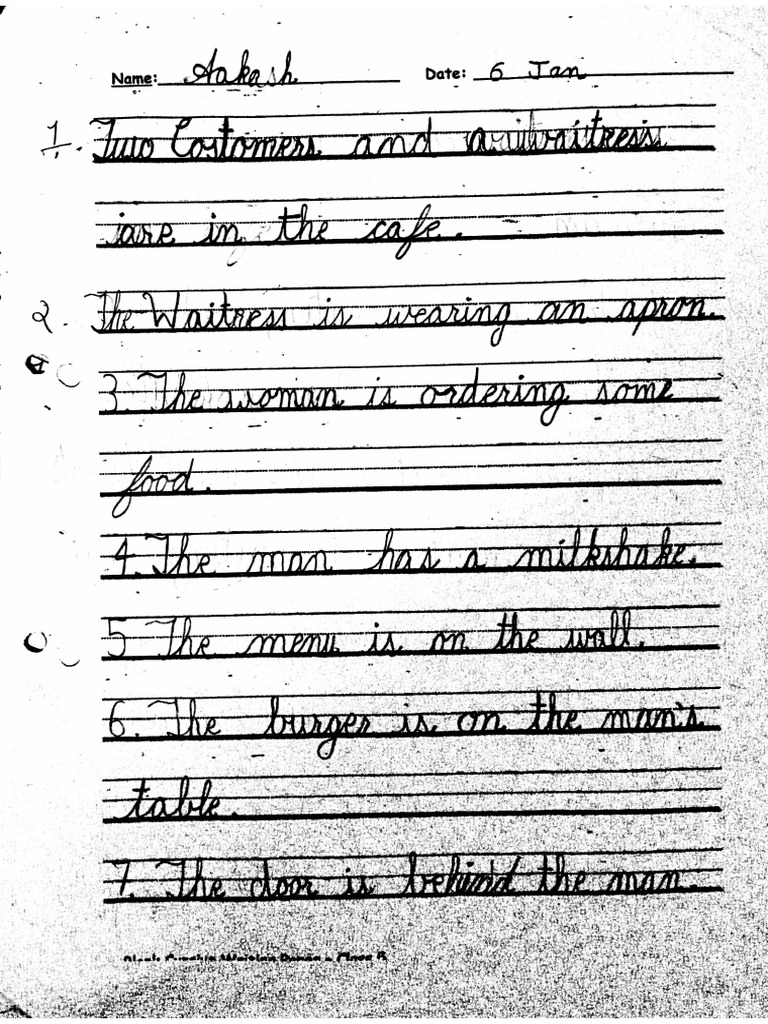 Name: Aakash Date: 6 Jan
1. Two Costomers and a waitress
are in the cafe.
2. The Waitress is wearing an apron.
3. The woman is ordering some
food.
4. The man has a milkshake.
5 The menu is on the wall.
6. The burger is on the man's
table.
7. The door is behind the man.